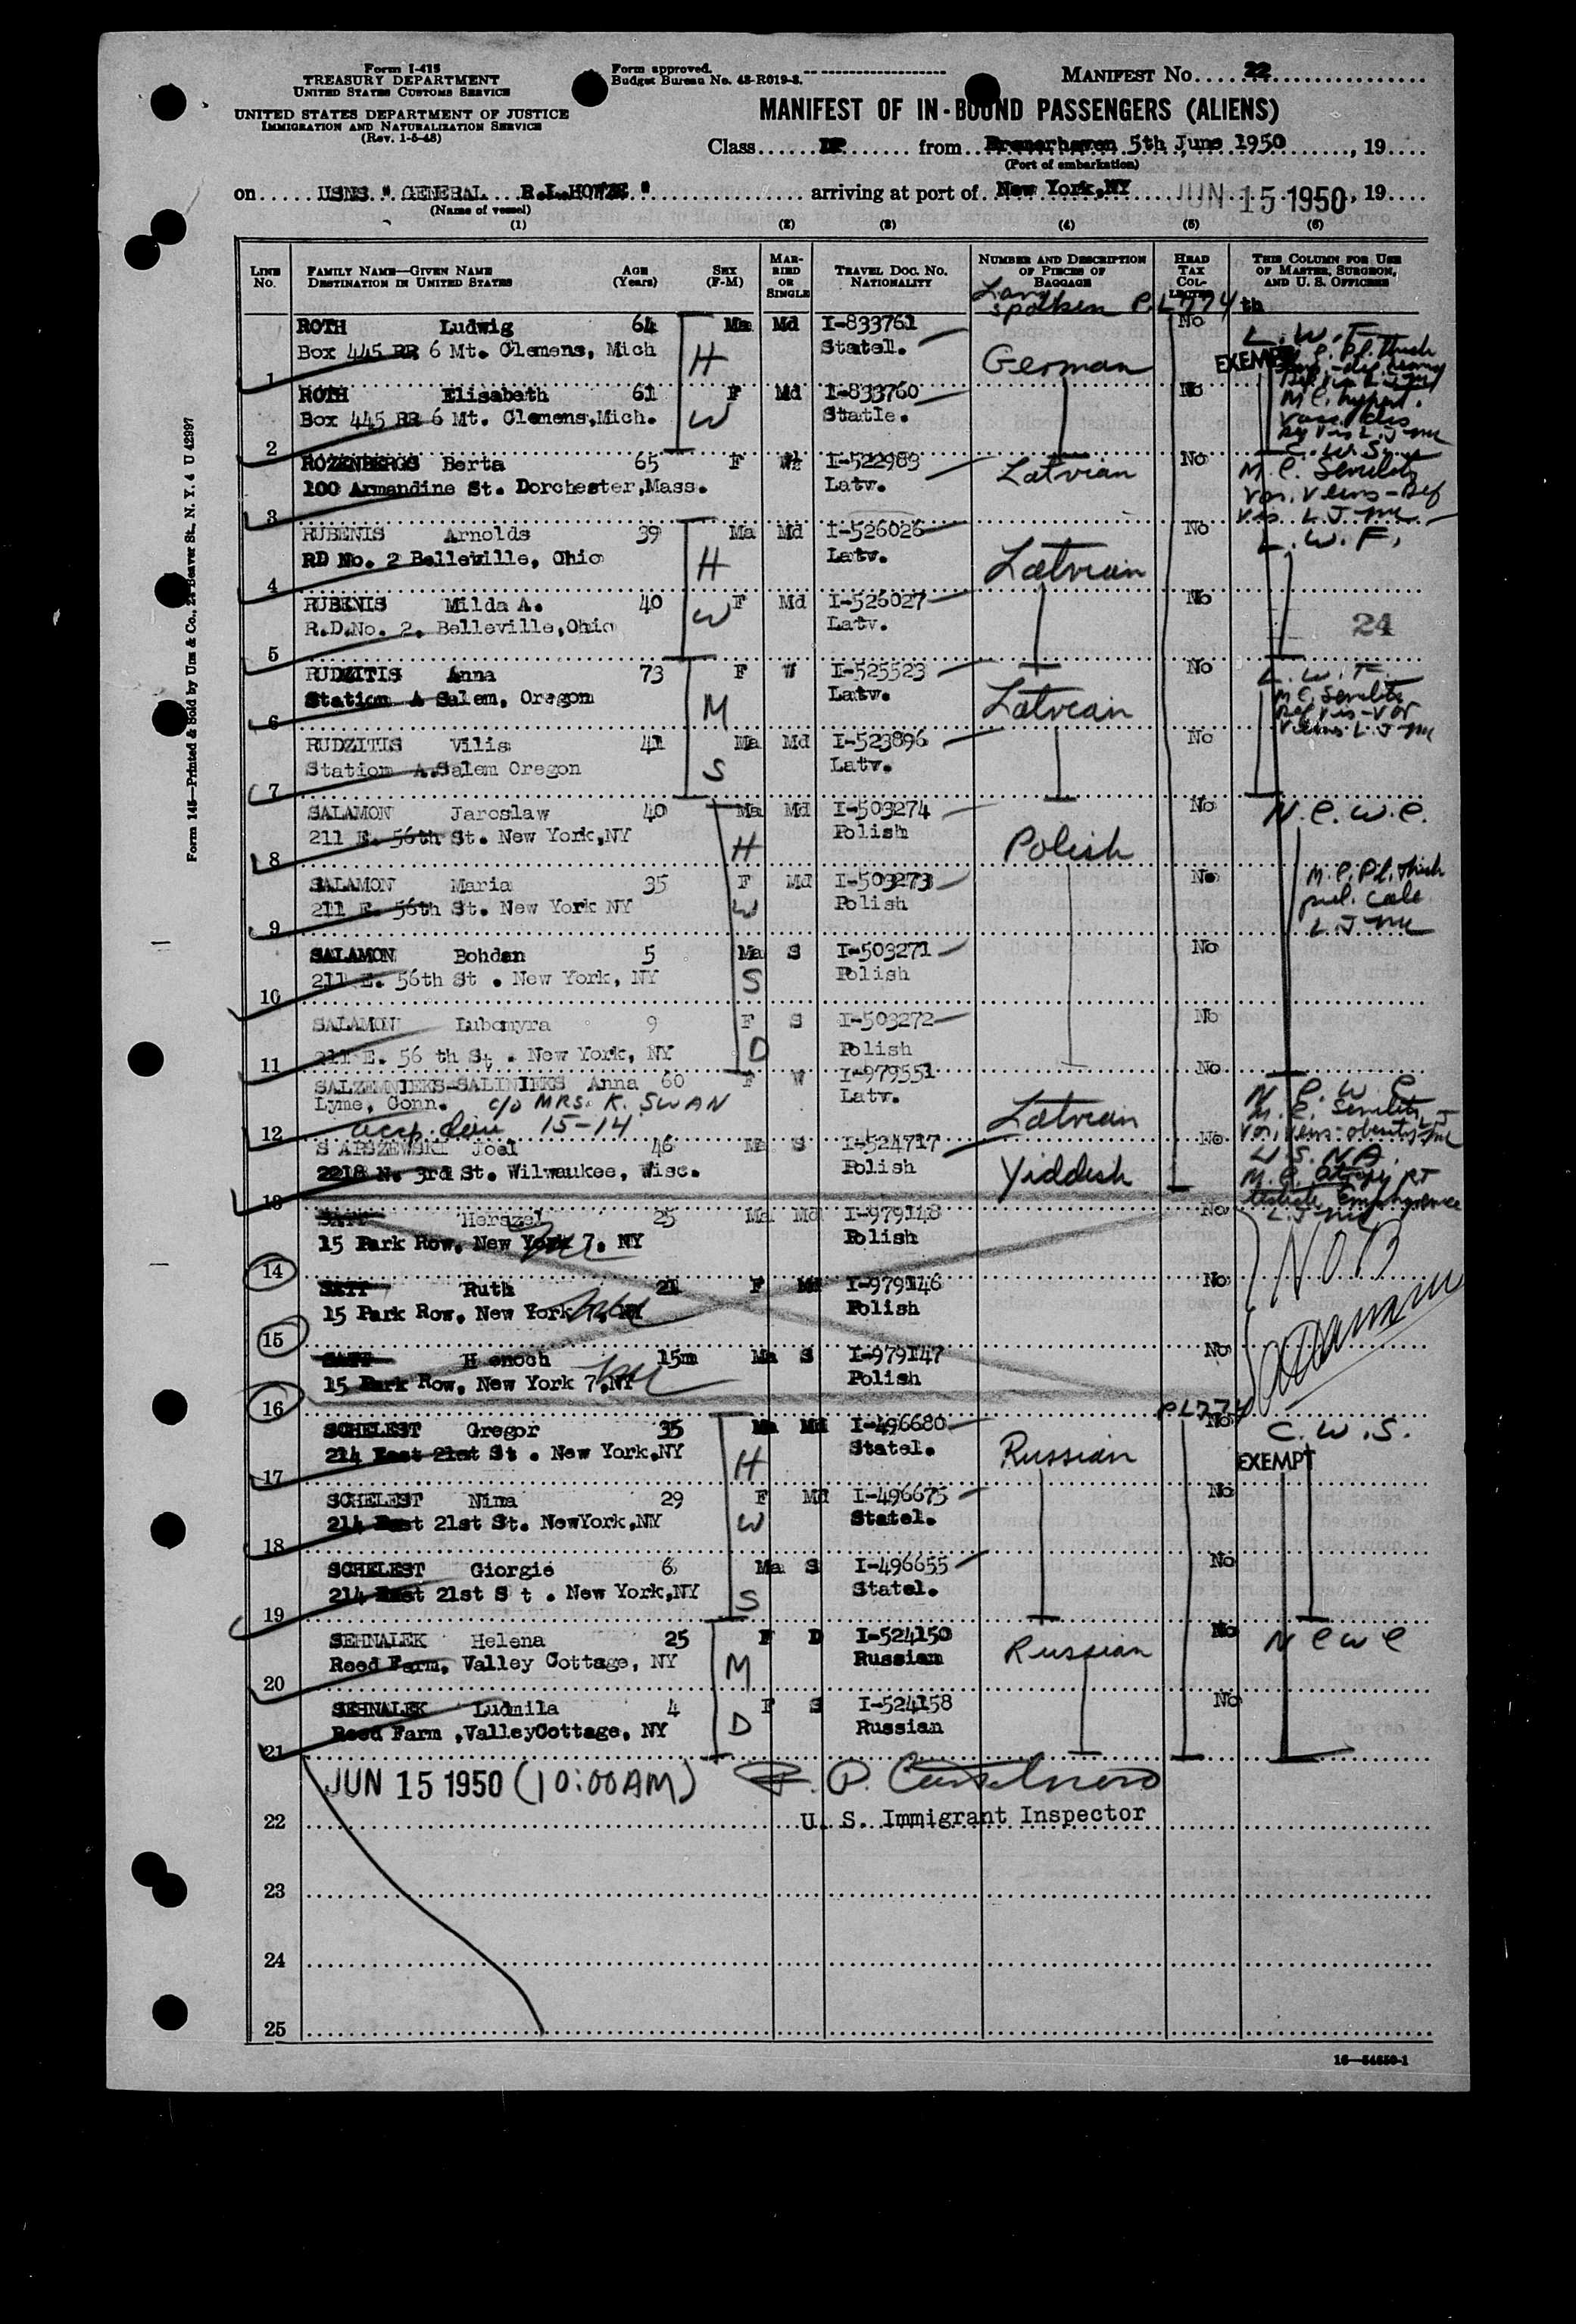 Form I-415
TREASURY DEPARTMENT
UNITED STATES CUSTOMS SERVICE
UNITED STATES DEPARTMENT OF JUSTICE
IMMIGRATION AND NATURALIZATION SERVICE
(Rev. 1-5-48)
Form approved.
Budget Bureau No. 43-R019-3.
MANIFEST NO. 22
MANIFEST OF IN-BOUND PASSENGERS (ALIENS)
Class DP from Bremerhaven 5th June 1950, 19
(Port of embarkation)
on USNS " GENERAL R.L.HOWZE " arriving at port of New York,NY JUN 15 1950, 19
(Name of vessel)
(1) (2) (3) (4) (5) (6)
LINE NO.
FAMILY NAME—GIVEN NAME
DESTINATION IN UNITED STATES
AGE (Years)
SEX (F-M)
MARRIED OR SINGLE
TRAVEL DOC. NO.
NATIONALITY
NUMBER AND DESCRIPTION OF PIECES OF BAGGAGE
HEAD TAX COLLECTED
THIS COLUMN FOR USE OF MASTER, SURGEON, AND U. S. OFFICERS
Lang spoken P.L 774 th
ROTH Ludwig 64 Ma Md I-833761 No L.W.F.
Box 445 RR 6 Mt. Clemens, Mich H Statel. German EXEMPT
1
ROTH Elisabeth 61 F Md I-833760 No
Box 445 RR 6 Mt. Clemens,Mich. W Statle.
2
ROZENBERGS Berta 65 F I-522983 Latvian No M.C. Senility
100 Armandine St. Dorchester,Mass. Latv.
3
RUBENIS Arnolds 39 Ma Md I-526026 No L.W.F.
RD No. 2 Belleville, Ohio H Latv. Latvian
4
RUBENIS Milda A. 40 F Md I-526027 No
R.D.No. 2. Belleville,Ohio W Latv. 24
5
RUDZITIS Anna 73 F W I-525523 No L.W.F.
Station A Salem, Oregon M Latv. Latvian
6
RUDZITIS Vilis 41 Ma Md I-523896 No
Station A.Salem Oregon S Latv.
7
SALAMON Jaroslaw 40 Ma Md I-503274 No N.C.W.C.
211 E. 56th St. New York,NY H Polish Polish
8
SALAMON Maria 35 F Md I-503273 No
211 E. 56th St. New York NY W Polish
9
SALAMON Bohdan 5 Ma S I-503271 No
211 E. 56th St . New York, NY S Polish
10
SALAMON Lubomyra 9 F S I-503272 No
211 E. 56 th St . New York, NY D Polish
11
SALZEMNIEKS-SALINIEKS Anna 60 F W I-979551 No N C W C
Lyme, Conn. c/o MRS. K. SWAN Latv. Latvian
12
15-14
SAPSZEWSKI Joel 46 Ma S I-524717 No U.S.N.A.
2218 N. 3rd St. Wilwaukee, Wisc. Polish Yiddish
13
Herszel 25 Ma Md I-979148 No
15 Park Row, New York 7. NY Polish NOB
14
Ruth 21 F Md I-979146 No
15 Park Row, New York Polish
15
H enoch 15m Ma S I-979147 No
15 Park Row, New York 7,NY Polish
16
PL774
SCHELEST Gregor 35 Ma Md I-496680 No C.W.S.
214 East 21st St . New York,NY H Statel. Russian EXEMPT
17
SCHELEST Nina 29 F Md I-496675 No
214 East 21st St. NewYork,NY W Statel.
18
SCHELEST Giorgie 6 Ma S I-496655 No
214 East 21st S t . New York,NY S Statel.
19
SEHNALEK Helena 25 F D I-524150 No N C W C
Reed Farm, Valley Cottage, NY M Russian Russian
20
SEHNALEK Ludmila 4 F S I-524158 No
Reed Farm ,ValleyCottage, NY D Russian
21
JUN 15 1950 (10:00AM)
U. S. Immigrant Inspector
22
23
24
25
16—54650-1
Form 145—Printed & Sold by Unz & Co., 24 Beaver St., N. Y. 4 U 42997